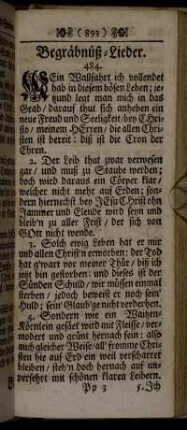 ( 893 )
Begräbnüß-Lieder.
484.
MEin Wallfahrt ich vollendet
hab in diesem bösen Leben; je-
tzund legt man mich in das
Grab/ darauf thut sich anheben ein
neue Freud und Seeligkeit/ bey CHri-
sto/ meinem HErren/ die allen Chri-
sten ist bereit: diß ist die Cron der
Ehren.
2. Der Leib that zwar verwesen
gar/ und muß zu Staube werden;
doch wird daraus ein Cörper klar/
welcher nicht mehr auf Erden; son-
dern hiernechst bey JEsu Christ ohn
Jammer und Elende wird seyn und
bleib'n zu aller Frist/ der sich von
GOtt nicht wende.
3. Solch ewig Leben hat er mir
und allen Christ'n erworben: der Tod
hat g'wart vor meiner Thür/ biß ich
jetzt bin gestorben: und dieses ist der
Sünden Schuld/ wir müssen einmal
sterben/ jedoch beweist er noch sein'
Huld; sein' Glaub'ge nicht verderben.
4. Sondern wie ein Waitzen-
Körnlein gesäet wird mit Fleisse/ ver-
modert und grünt hernach sein: also
auch gleicher Weise all' fromme Chri-
sten hie auf Erd ein weil verscharret
bleiben/ steh'n doch hernach auf un-
versehrt mit schönen klaren Leibern.
Pp 3 5. Ich